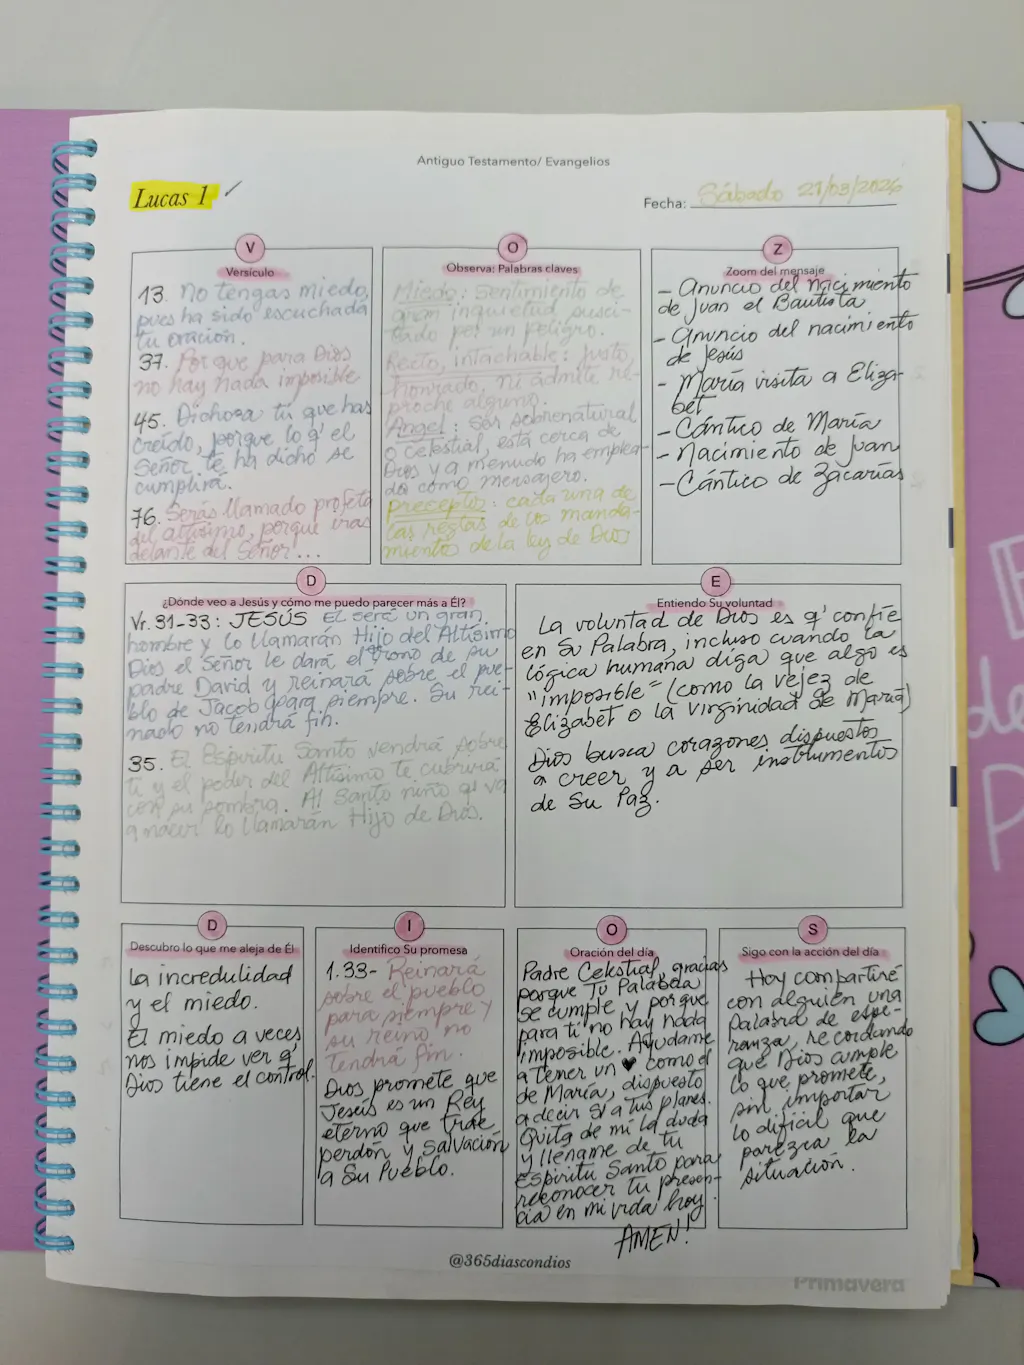 Antiguo Testamento/ Evangelios
Lucas 1 ✓
Fecha: Sábado 21/03/2026
V
Versículo
13. No tengas miedo,
pues ha sido escuchada
tu oración.
37. Porque para Dios
no hay nada imposible
45. Dichosa tú que has
creído, porque lo q' el
Señor te ha dicho se
cumplirá.
76. Serás llamado profeta
del altísimo, porque irás
delante del Señor...
O
Observa: Palabras claves
Miedo: Sentimiento de
gran inquietud susci-
tado por un peligro.
Recto, intachable: justo,
honrado, ni admite re-
proche alguno.
Angel: Ser sobrenatural
o celestial, está cerca de
Dios y a menudo ha emplea-
do como mensajero.
preceptos: cada una de
las reglas de los manda-
miento de la ley de Dios
Z
Zoom del mensaje
- Anuncio del nacimiento
de Juan el Bautista
- Anuncio del nacimiento
de Jesús
- María visita a Eliza-
bet
- Cántico de María
- Nacimiento de Juan
- Cántico de Zacarías
D
¿Dónde veo a Jesús y cómo me puedo parecer más a Él?
Vr. 31-33: JESÚS El será un gran
hombre y lo llamarán Hijo del Altísimo
Dios el Señor le dará el trono de su
padre David y reinará sobre el pue-
blo de Jacob para siempre. Su rei-
nado no tendrá fin.
35. El Espíritu Santo vendrá sobre
ti y el poder del Altísimo te cubrirá
con su sombra. Al Santo niño q' va
a nacer lo llamarán Hijo de Dios.
E
Entiendo Su voluntad
La voluntad de Dios es q' confíe
en Su Palabra, incluso cuando la
lógica humana diga que algo es
"imposible" (como la vejez de
Elizabet o la virginidad de María)
Dios busca corazones dispuestos
a creer y a ser instrumentos
de Su Paz.
D
Descubro lo que me aleja de Él
La incredulidad
y el miedo.
El miedo a veces
nos impide ver q'
Dios tiene el control.
I
Identifico Su promesa
1.33- Reinará
sobre el pueblo
para siempre y
su reino no
tendrá fin.
Dios promete que
Jesús es un Rey
eterno que trae
perdón y salvación
a Su Pueblo.
O
Oración del día
Padre Celestial, gracias
porque Tu Palabra
se cumple y porque
para ti no hay nada
imposible. Ayudame
a tener un ♥ como el
de María, dispuesto
a decir sí a tus planes.
Quita de mi la duda
y lléname de tu
Espíritu Santo para
reconocer tu presen-
cia en mi vida hoy.
AMEN!
S
Sigo con la acción del día
Hoy compartiré
con alguien una
Palabra de espe-
ranza, recordando
que Dios cumple
lo que promete,
sin importar
lo difícil que
parezca la
situación.
@365diascondios
Primavera